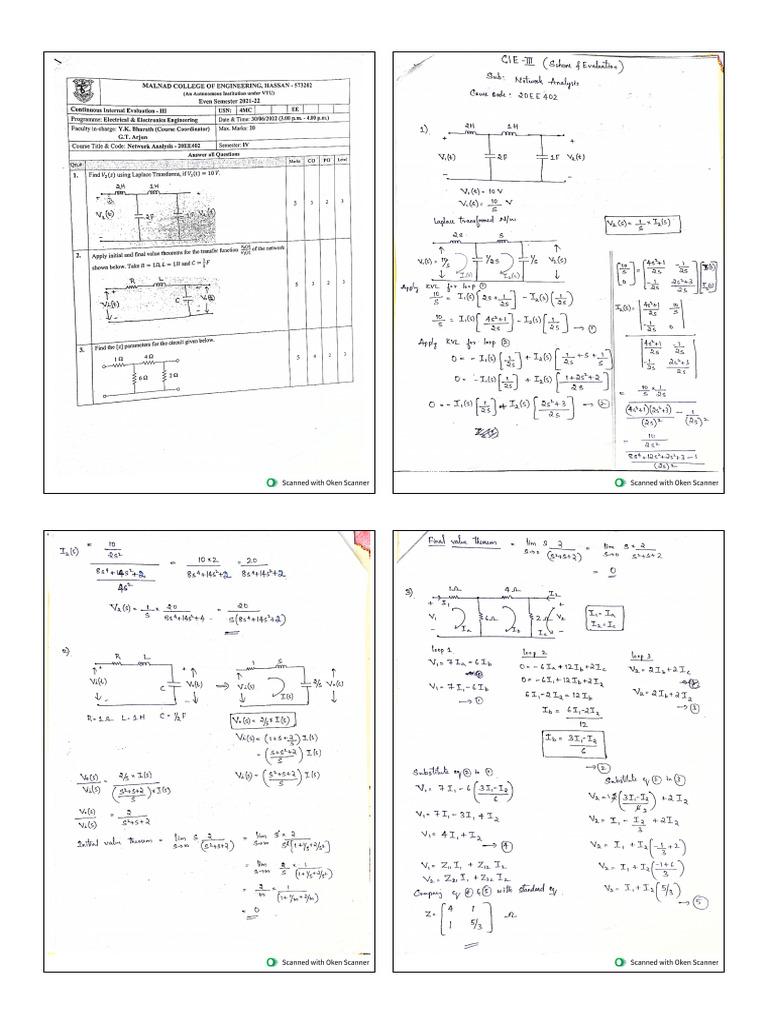 MALNAD COLLEGE OF ENGINEERING, HASSAN - 573202
(An Autonomous Institution under VTU)
Even Semester 2021-22
Continuous Internal Evaluation - III
USN: 4MC EE
Programme: Electrical & Electronics Engineering
Date & Time: 30/06/2022 (3.00 p.m. - 4.00 p.m.)
Faculty in-charge: Y.K. Bharath (Course Coordinator)
G.T. Arjun
Max. Marks: 10
Course Title & Code: Network Analysis - 20EE402
Semester: IV
Answer all Questions
Qn.# Marks CO PO Level
1. Find V₂(s) using Laplace Transforms, if V₁(t) = 10 V.
2H 1H
2F 1F
5 3 2 3
2. Apply initial and final value theorems for the transfer function V₀(s)/Vᵢ(s) of the network
shown below. Take R = 1Ω, L = 1H and C = ½F
R L
C
5 3 2 3
3. Find the [z] parameters for the circuit given below.
1Ω 4Ω
6Ω 2Ω
5 4 2 3
Scanned with Oken Scanner
CIE-III (Scheme of Evaluation)
Sub: Network Analysis
Course Code: 20EE402
1)
2H 1H
V₁(t) 2F 1F V₂(t)
V₁(t) = 10 V
V₁(s) = 10/s V
Laplace transformed N/w
2s s
V₁(s) = 10/s 1/2s 1/s V₂(s)
I₁(s) I₂(s)
V₂(s) = 1/s × I₂(s)
Apply KVL for loop ①
10/s = I₁(s)[2s + 1/2s] - I₂(s)(1/2s)
10/s = I₁(s)[4s²+1/2s] - I₂(s)[1/2s] → ①
Apply KVL for loop ②
0 = -I₁(s)(1/2s) + I₂(s)[1/2s + s + 1/s]
0 = -I₁(s)[1/2s] + I₂(s)[1+2s²+2/2s]
0 = -I₁(s)[1/2s] + I₂(s)[2s²+3/2s] → ②
[10/s 0] = [4s²+1/2s -1/2s -1/2s 2s²+3/2s] [I₁(s) I₂(s)]
I₂(s) = |4s²+1/2s 10/s -1/2s 0|
|4s²+1/2s -1/2s -1/2s 2s²+3/2s|
= 10/s × 1/2s
(4s²+1)(2s²+3)/(2s)² - 1/(2s)²
= 10/2s²
8s⁴+12s²+2s²+3-1/(2s)²
Scanned with Oken Scanner
I₂(s) = 10/2s² / 8s⁴+14s²+2/4s² = 10×2/8s⁴+14s²+2 = 20/8s⁴+14s²+2
V₂(s) = 1/s × 20/8s⁴+14s²+4 = 20/s(8s⁴+14s²+2)
2)
R L 1 s
Vᵢ(t) C V₀(t) ⇒ Vᵢ(s) I(s) 2/s V₀(s)
R = 1Ω L = 1H C = ½F
V₀(s) = 2/s I(s)
Vᵢ(s) = (1+s+2/s) I(s)
= (s+s²+2/s) I(s)
Vᵢ(s) = (s²+s+2/s) I(s)
V₀(s)/Vᵢ(s) = 2/s × I(s) / (s²+s+2/s) × I(s)
V₀(s)/Vᵢ(s) = 2/s²+s+2
Initial value theorem = lim s→∞ s 2/(s²+s+2) = lim s→∞ s × 2/s²[1+1/s+2/s²]
= lim s→∞ 2/s × 1/(1+1/s+2/s²)
= 2/∞ × 1/(1+1/∞+2/∞)
= 0
Scanned with Oken Scanner
Final value theorem = lim s→0 s 2/(s²+s+2) = lim s→0 s×2/s²+s+2
= 0
3)
1Ω 4Ω
I₁ I₂
V₁ 6Ω 2Ω V₂
Iₐ I_b I_c
I₁ = Iₐ
I₂ = I_c
loop 1
V₁ = 7Iₐ - 6I_b
V₁ = 7I₁ - 6I_b
→ ①
loop 2
0 = -6Iₐ + 12I_b + 2I_c
0 = -6I₁ + 12I_b + 2I₂
6I₁ - 2I₂ = 12I_b
I_b = 6I₁-2I₂/12
I_b = 3I₁-I₂/6
→ ②
loop 3
V₂ = 2I_b + 2I_c
V₂ = 2I_b + 2I₂
→ ③
Substitute eq ② in ①
V₁ = 7I₁ - 6(3I₁-I₂/6)
V₁ = 7I₁ - 3I₁ + I₂
V₁ = 4I₁ + I₂
→ ④
Substitute eq ② in ③
V₂ = 2(3I₁-I₂/6) + 2I₂
V₂ = I₁ - I₂/3 + 2I₂
V₂ = I₁ + I₂(-1/3 + 2)
V₂ = I₁ + I₂(-1+6/3)
V₂ = I₁ + I₂(5/3)
→ ⑤
V₁ = Z₁₁ I₁ + Z₁₂ I₂
V₂ = Z₂₁ I₁ + Z₂₂ I₂
Comparing eq ④ & ⑤ with standard eq.
Z = [4 1 1 5/3] Ω
Scanned with Oken Scanner